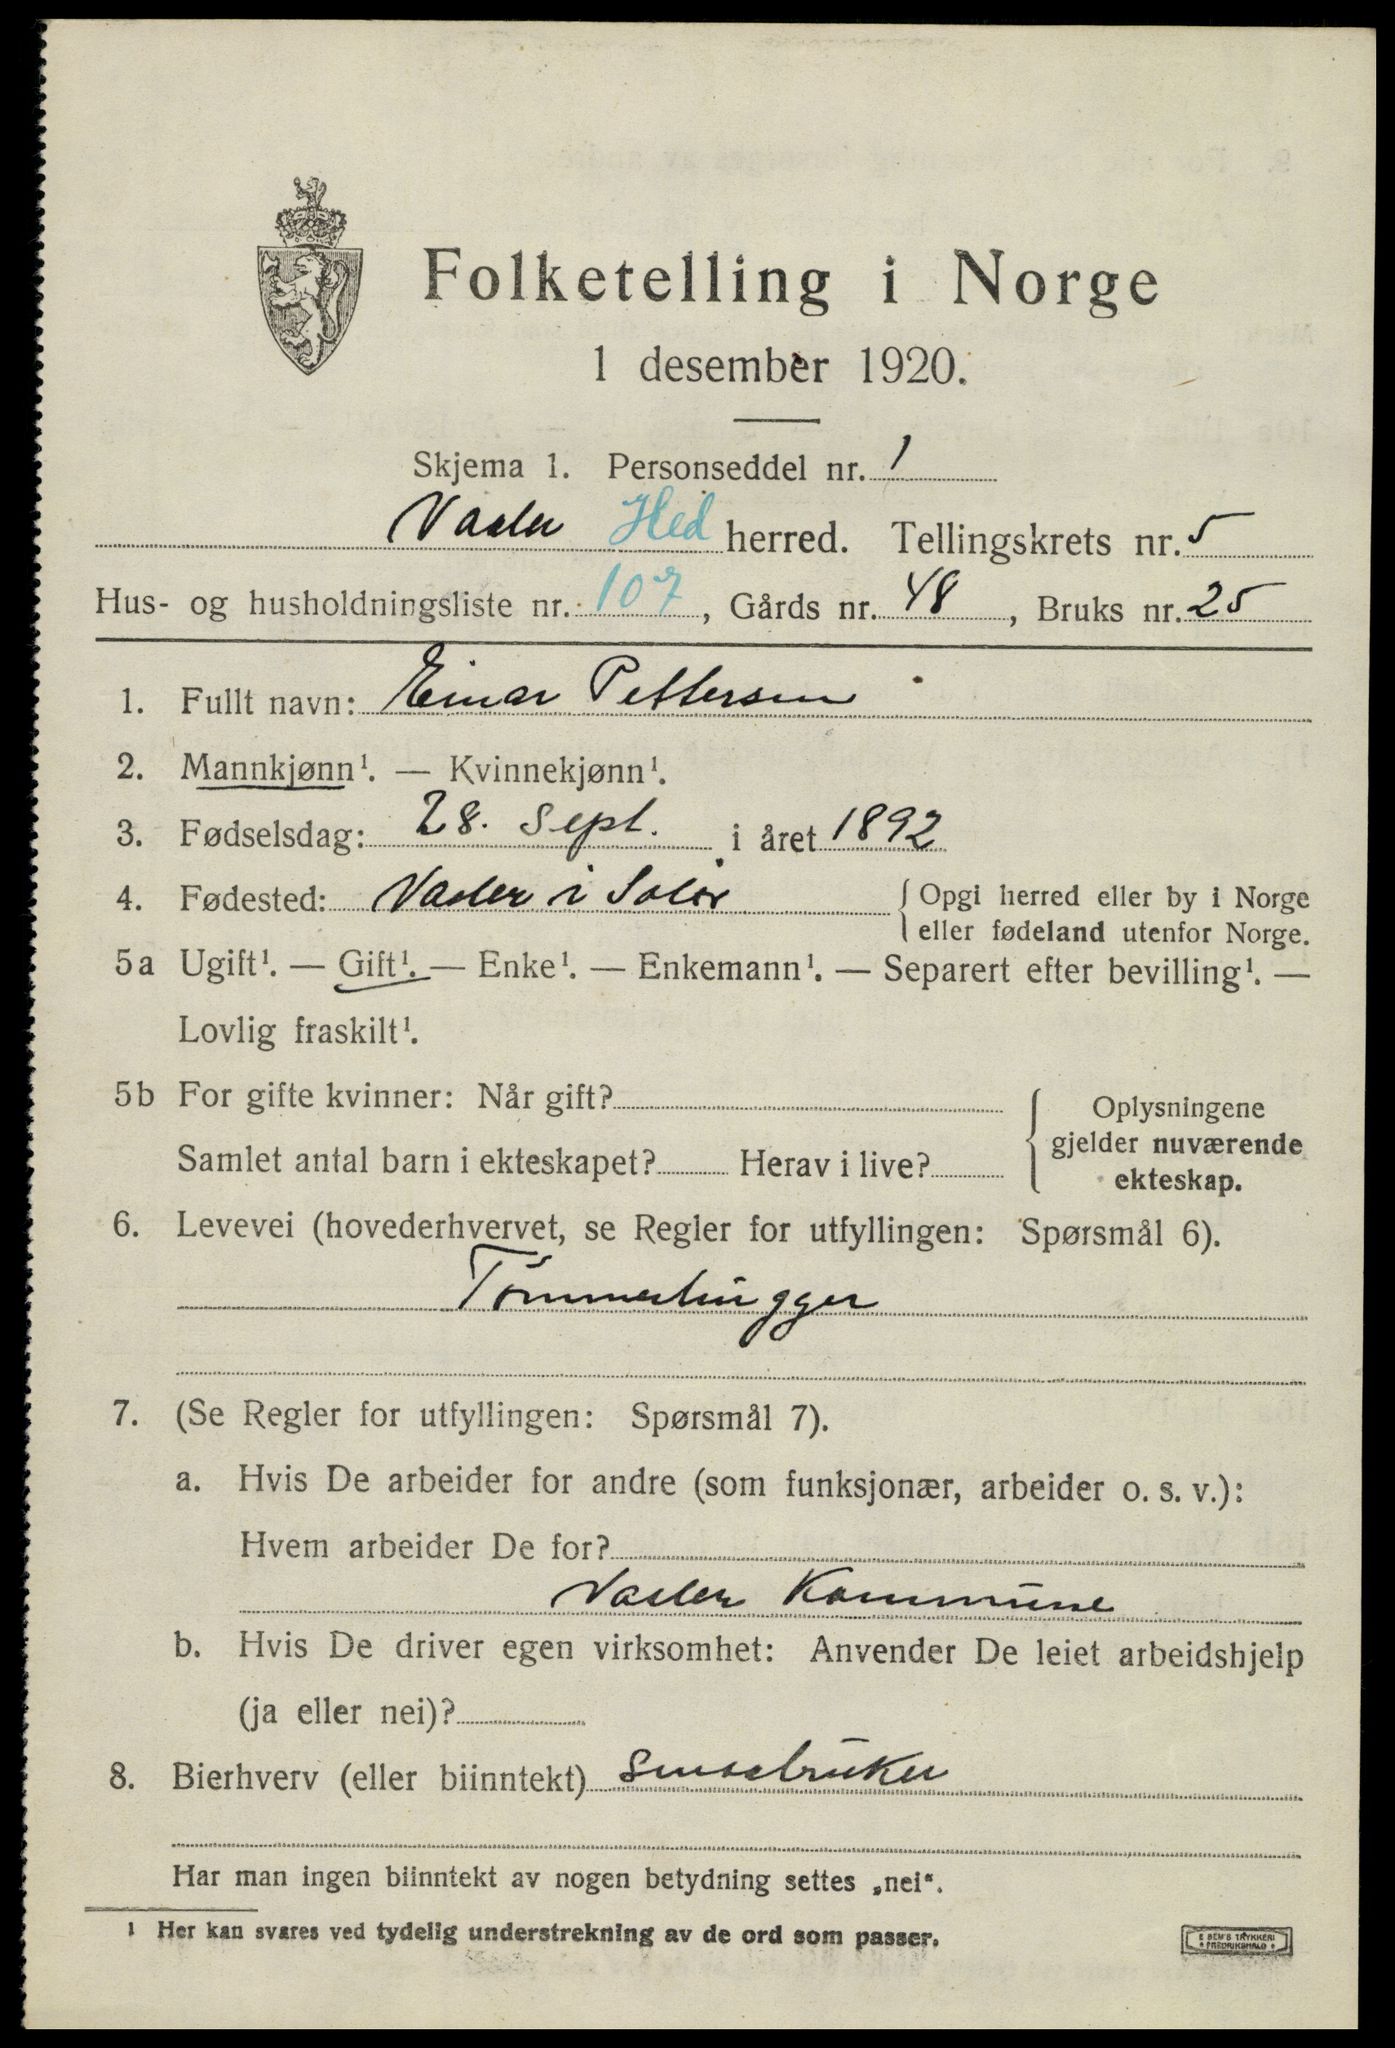 Folketelling i Norge
1 desember 1920.
Skjema 1. Personseddel nr. 1
Vaaler Hed herred. Tellingskrets nr. 5
Hus- og husholdningsliste nr. 107, Gårds nr. 48, Bruks nr. 25
1. Fullt navn: Einar Pettersen
2. Mannkjønn¹. — Kvinnekjønn¹.
3. Fødselsdag: 28. Sept. i året 1892
4. Fødested: Vaaler i Solør { Opgi herred eller by i Norge
eller fødeland utenfor Norge.
5a Ugift¹. — Gift¹. — Enke¹. — Enkemann¹. — Separert efter bevilling¹. —
Lovlig fraskilt¹.
5b For gifte kvinner: Når gift?
Samlet antal barn i ekteskapet? Herav i live?
Oplysningene
gjelder nuværende
ekteskap.
6. Levevei (hovederhvervet, se Regler for utfyllingen: Spørsmål 6).
Tømmerhugger
7. (Se Regler for utfyllingen: Spørsmål 7).
a. Hvis De arbeider for andre (som funksjonær, arbeider o. s. v.):
Hvem arbeider De for?
Vaaler Kommune
b. Hvis De driver egen virksomhet: Anvender De leiet arbeidshjelp
(ja eller nei)?
8. Bierhverv (eller biinntekt) Smaabruker
Har man ingen biinntekt av nogen betydning settes „nei“.
¹ Her kan svares ved tydelig understrekning av de ord som passer.
E SEM'S TRYKKERI
* FREDRIKSHALD *